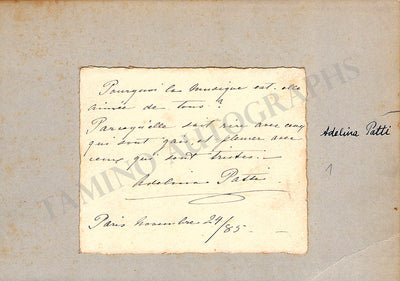 Pourquoi la musique est-elle
aimée de tous?
Parcequ'elle sait rire avec ceux
qui sont gais et pleurer avec
ceux qui sont tristes.—
Adelina Patti
Paris Novembre 24/85.—
Adelina Patti
1
TAMINO AUTOGRAPHS